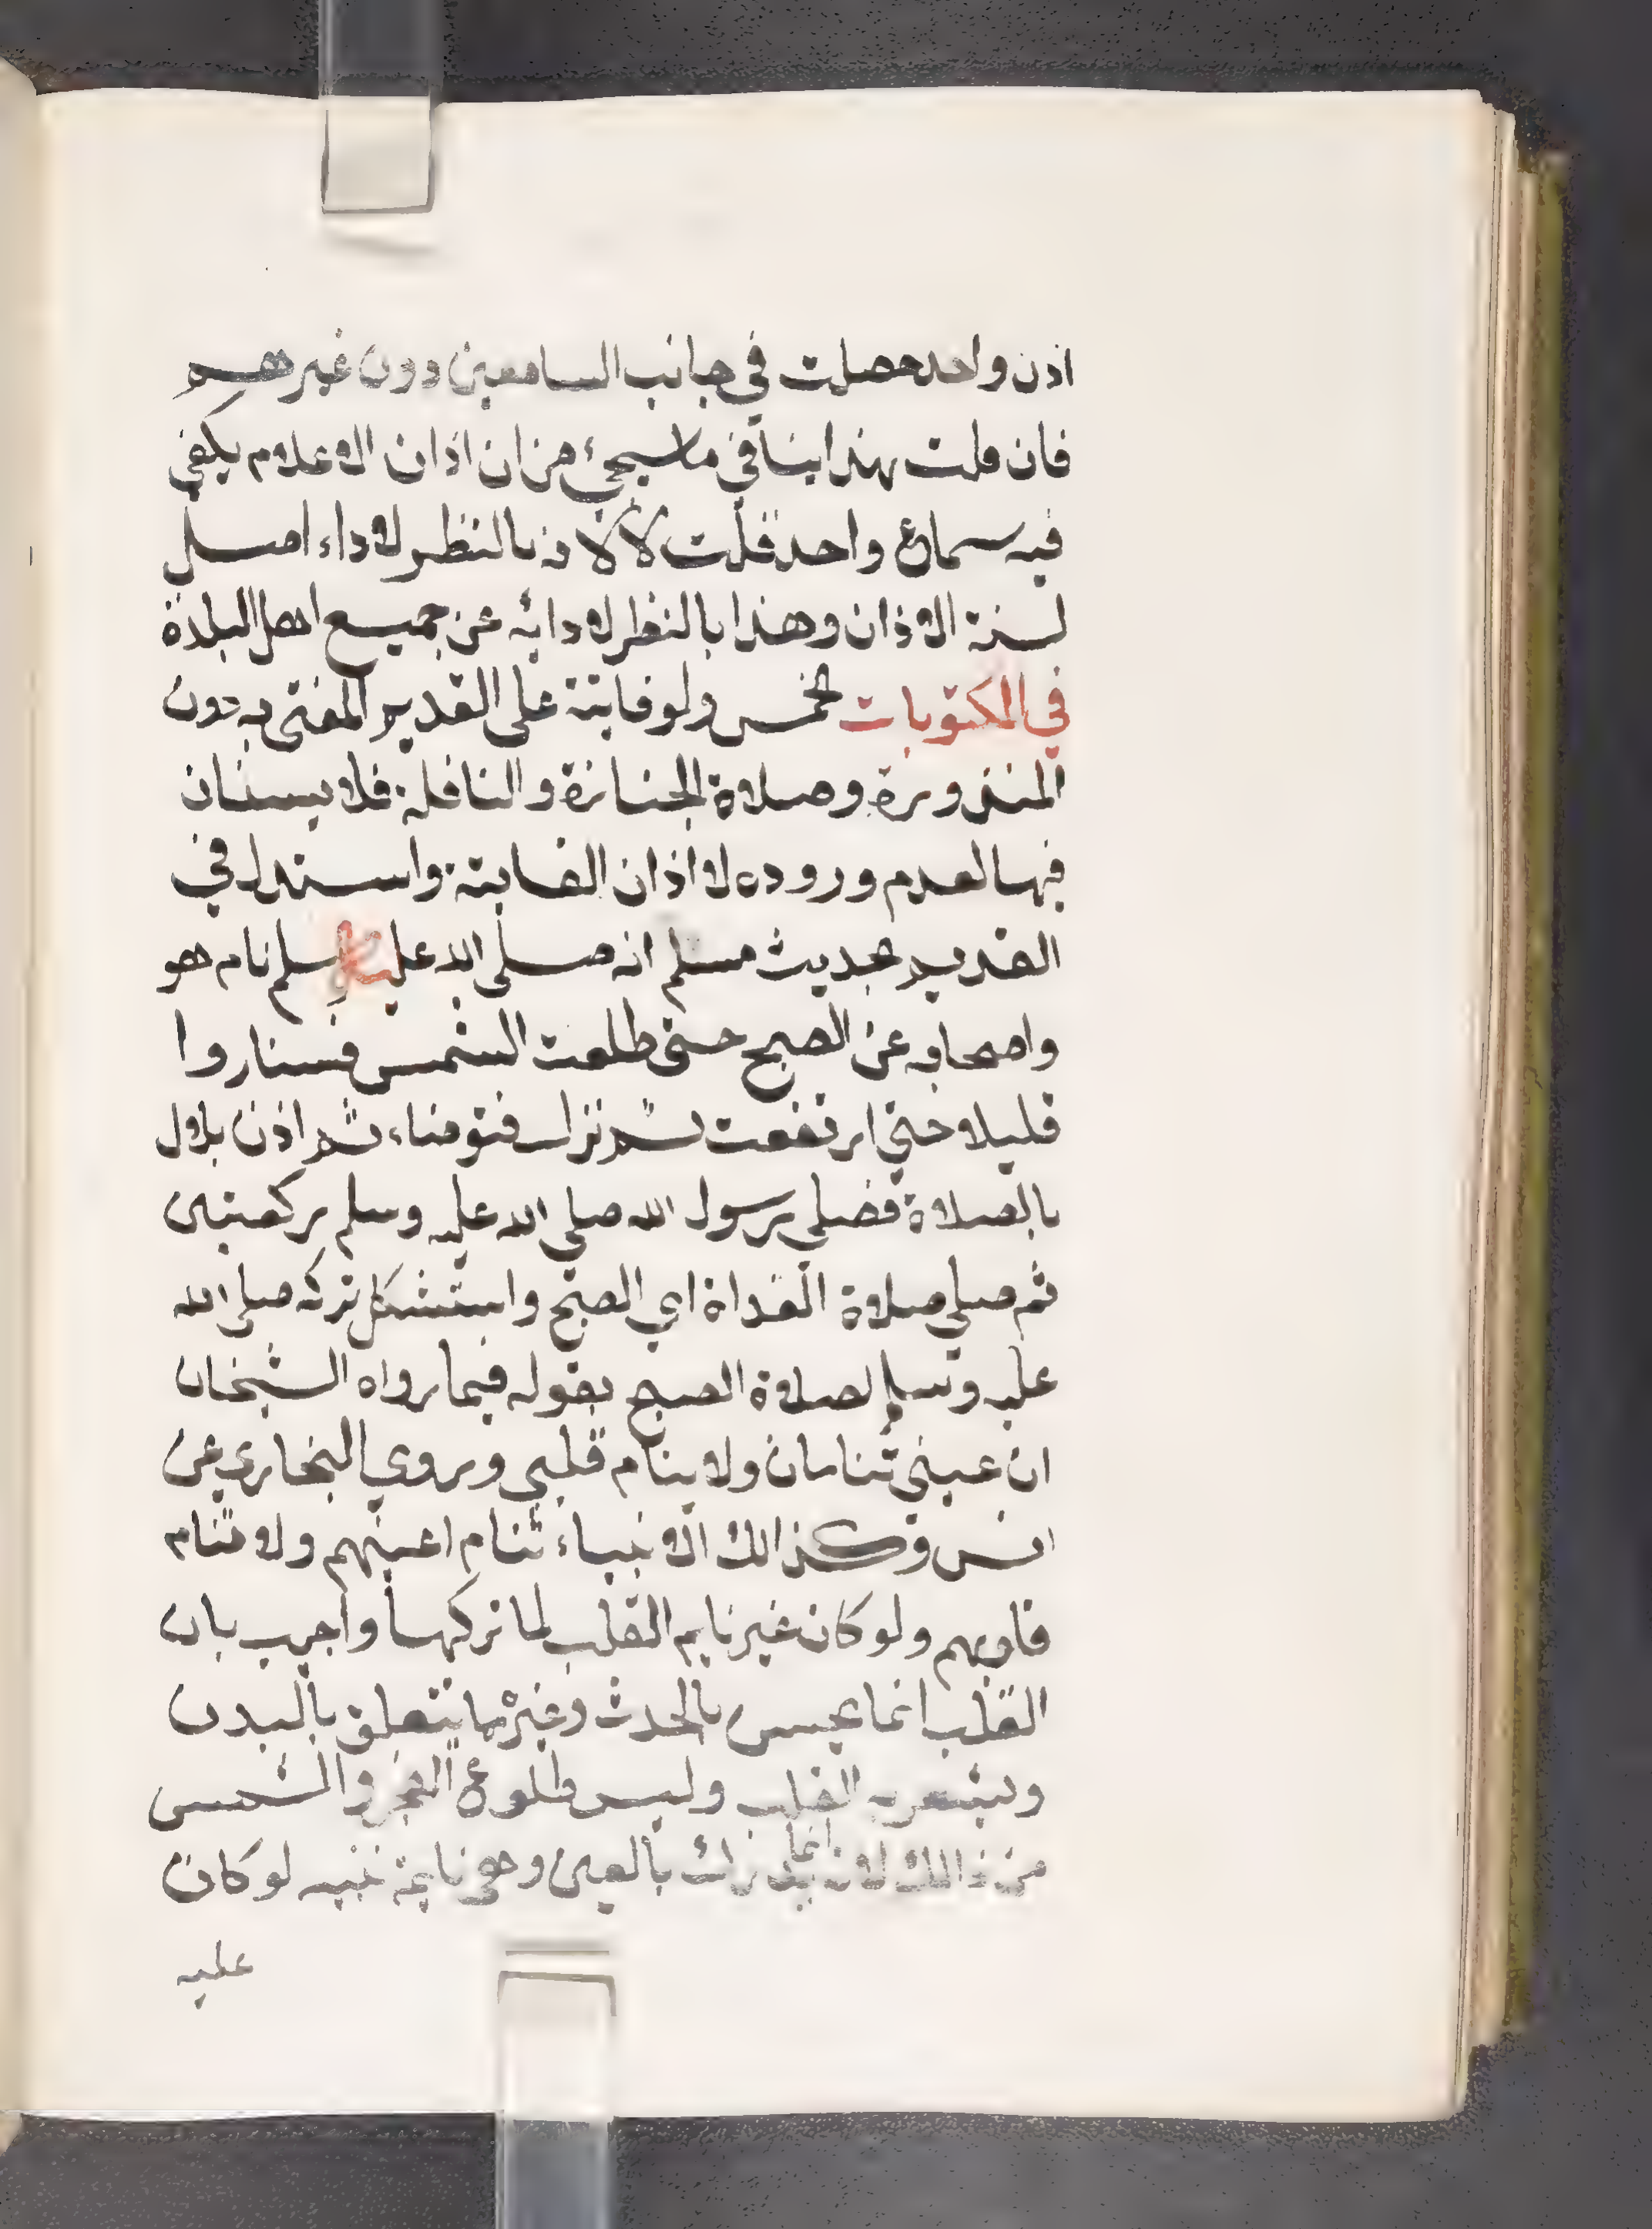 اذن واحد حصلت في جانب السامعين دون غيرهم
فان قلت هذا ينافي ما سيجئ من ان اذان الاعلام يكفي
فيه سماع واحد قلت لا لانه بالنظر لاداء اصل
لسنة الاذان وهذا بالنظر لادائه عن جميع اهل البلدة
في المكتوبات الخمس ولو فايتة على القديم المفتى به دون
المنذورة وصلاة الجنازة والنافلة فلا يسنان
فيها لعدم وروده لا اذان الفايتة واستدل في
القديم بحديث مسلم انه صلى الله عليه وسلم نام هو
واصحابه عن الصبح حتى طلعت الشمس فسناروا
قليلا حتي ارتفعت ثم نزل فتوضاء ثم اذن بلال
بالصلاة فصلي رسول الله صلي الله عليه وسلم ركعتين
ثم صلي صلاة الغداة اي الصبح واستشكل تركه صلى الله
عليه وسلم لصلاة الصبح بقوله فيما رواه الشيخان
ان عيني تنامان ولا ينام قلبي وروي البخاري عن
انس وكذالك الانبياء تنام اعينهم ولا تنام
قلوبهم ولو كان غير نايم القلب لما تركها واجيب بان
القلب انما يحس بالحدث وغيره مما يتعلق بالبدن
ويشعر به القلب وليس طلوع الفجر والشمس
من ذالك لانه انما يدرك بالعين وهي نايمة تنبيه لو كان
عليه